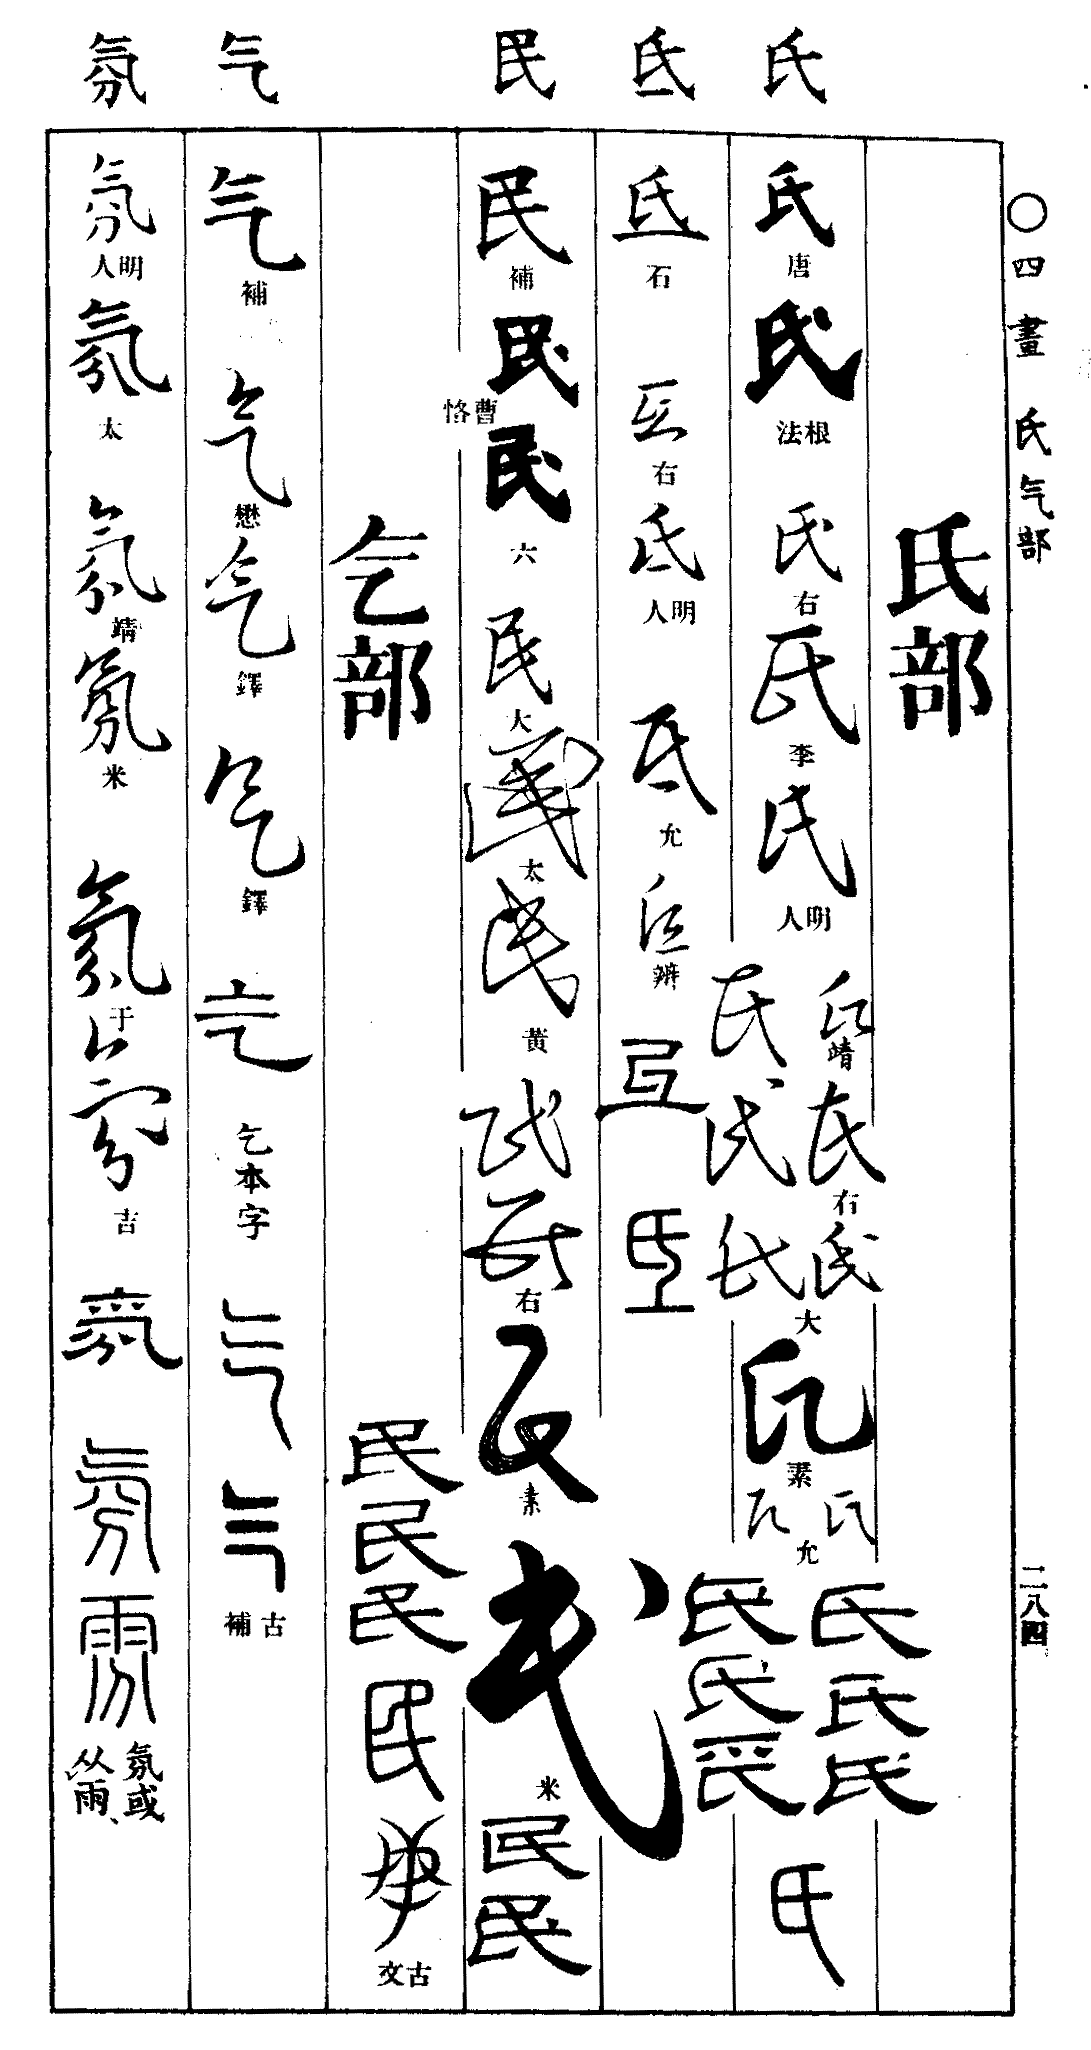 〇四畫 氏气部 二八四
氏 氐 民 气 氛
氏部
氏唐
氏根法
氏右
氏李
氏明人
氏靖
氏氏右
氏氏大
氏素
氏氏允
氏氏
氏氏
氏氏
氏
氐石
氐右
氐明人
氐允
氐辨
氐
氐
民補
民曹恪
民六
民大
民太
民黃
民
民右
民素
民米
民
民
民
民
民
民
民古文
气部
气補
气懋
气鐸
气鐸
气
乞本字
气
气古補
氛明人
氛太
氛靖
氛米
氛于
氛吉
氛
氛
雰
氛或
从雨